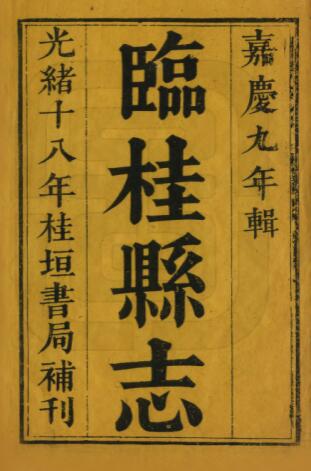 嘉慶九年輯
臨桂縣志
光緒十八年桂垣書局補刊